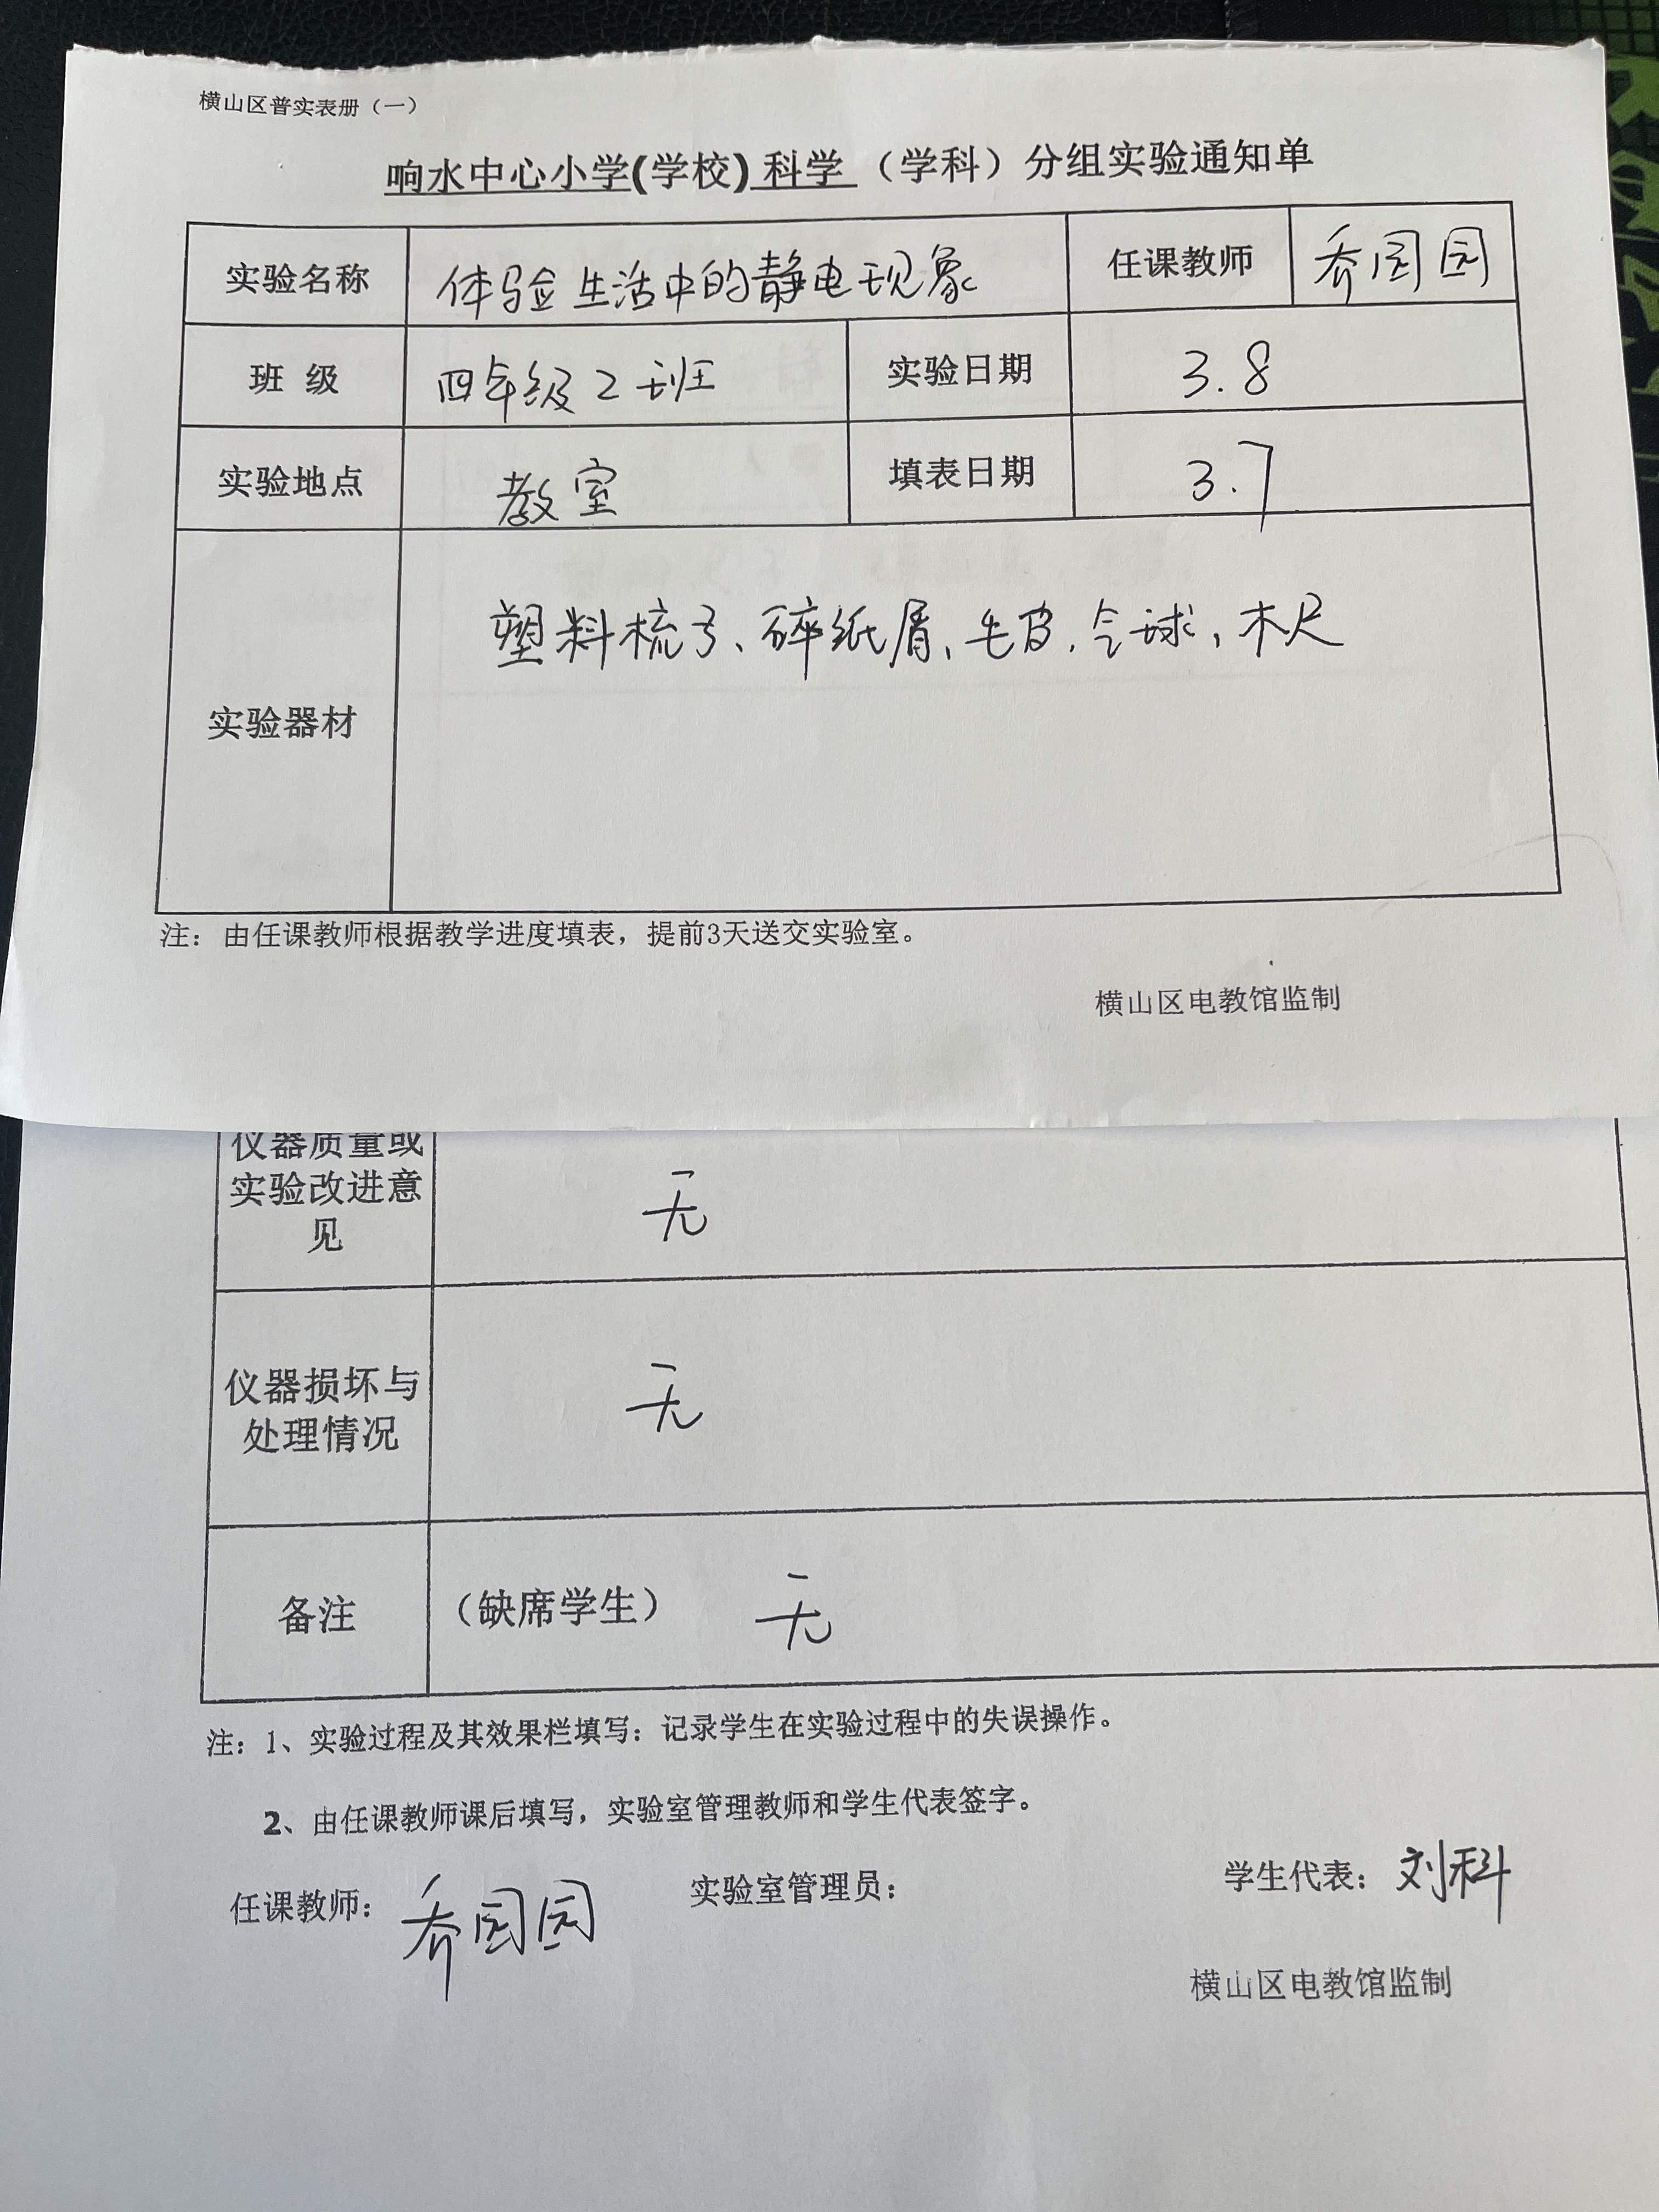 横山区普实表册（一）
响水中心小学(学校) 科学 （学科）分组实验通知单
实验名称 体验生活中的静电现象 任课教师 乔园园
班 级 四年级2班 实验日期 3.8
实验地点 教室 填表日期 3.7
实验器材 塑料梳子、碎纸屑、毛皮，气球，木尺
注：由任课教师根据教学进度填表，提前3天送交实验室。
横山区电教馆监制
仪器质量或
实验改进意
见
无
仪器损坏与
处理情况
无
备注 （缺席学生） 无
注：1、实验过程及其效果栏填写：记录学生在实验过程中的失误操作。
2、由任课教师课后填写，实验室管理教师和学生代表签字。
任课教师： 乔园园 实验室管理员： 学生代表： 刘科
横山区电教馆监制